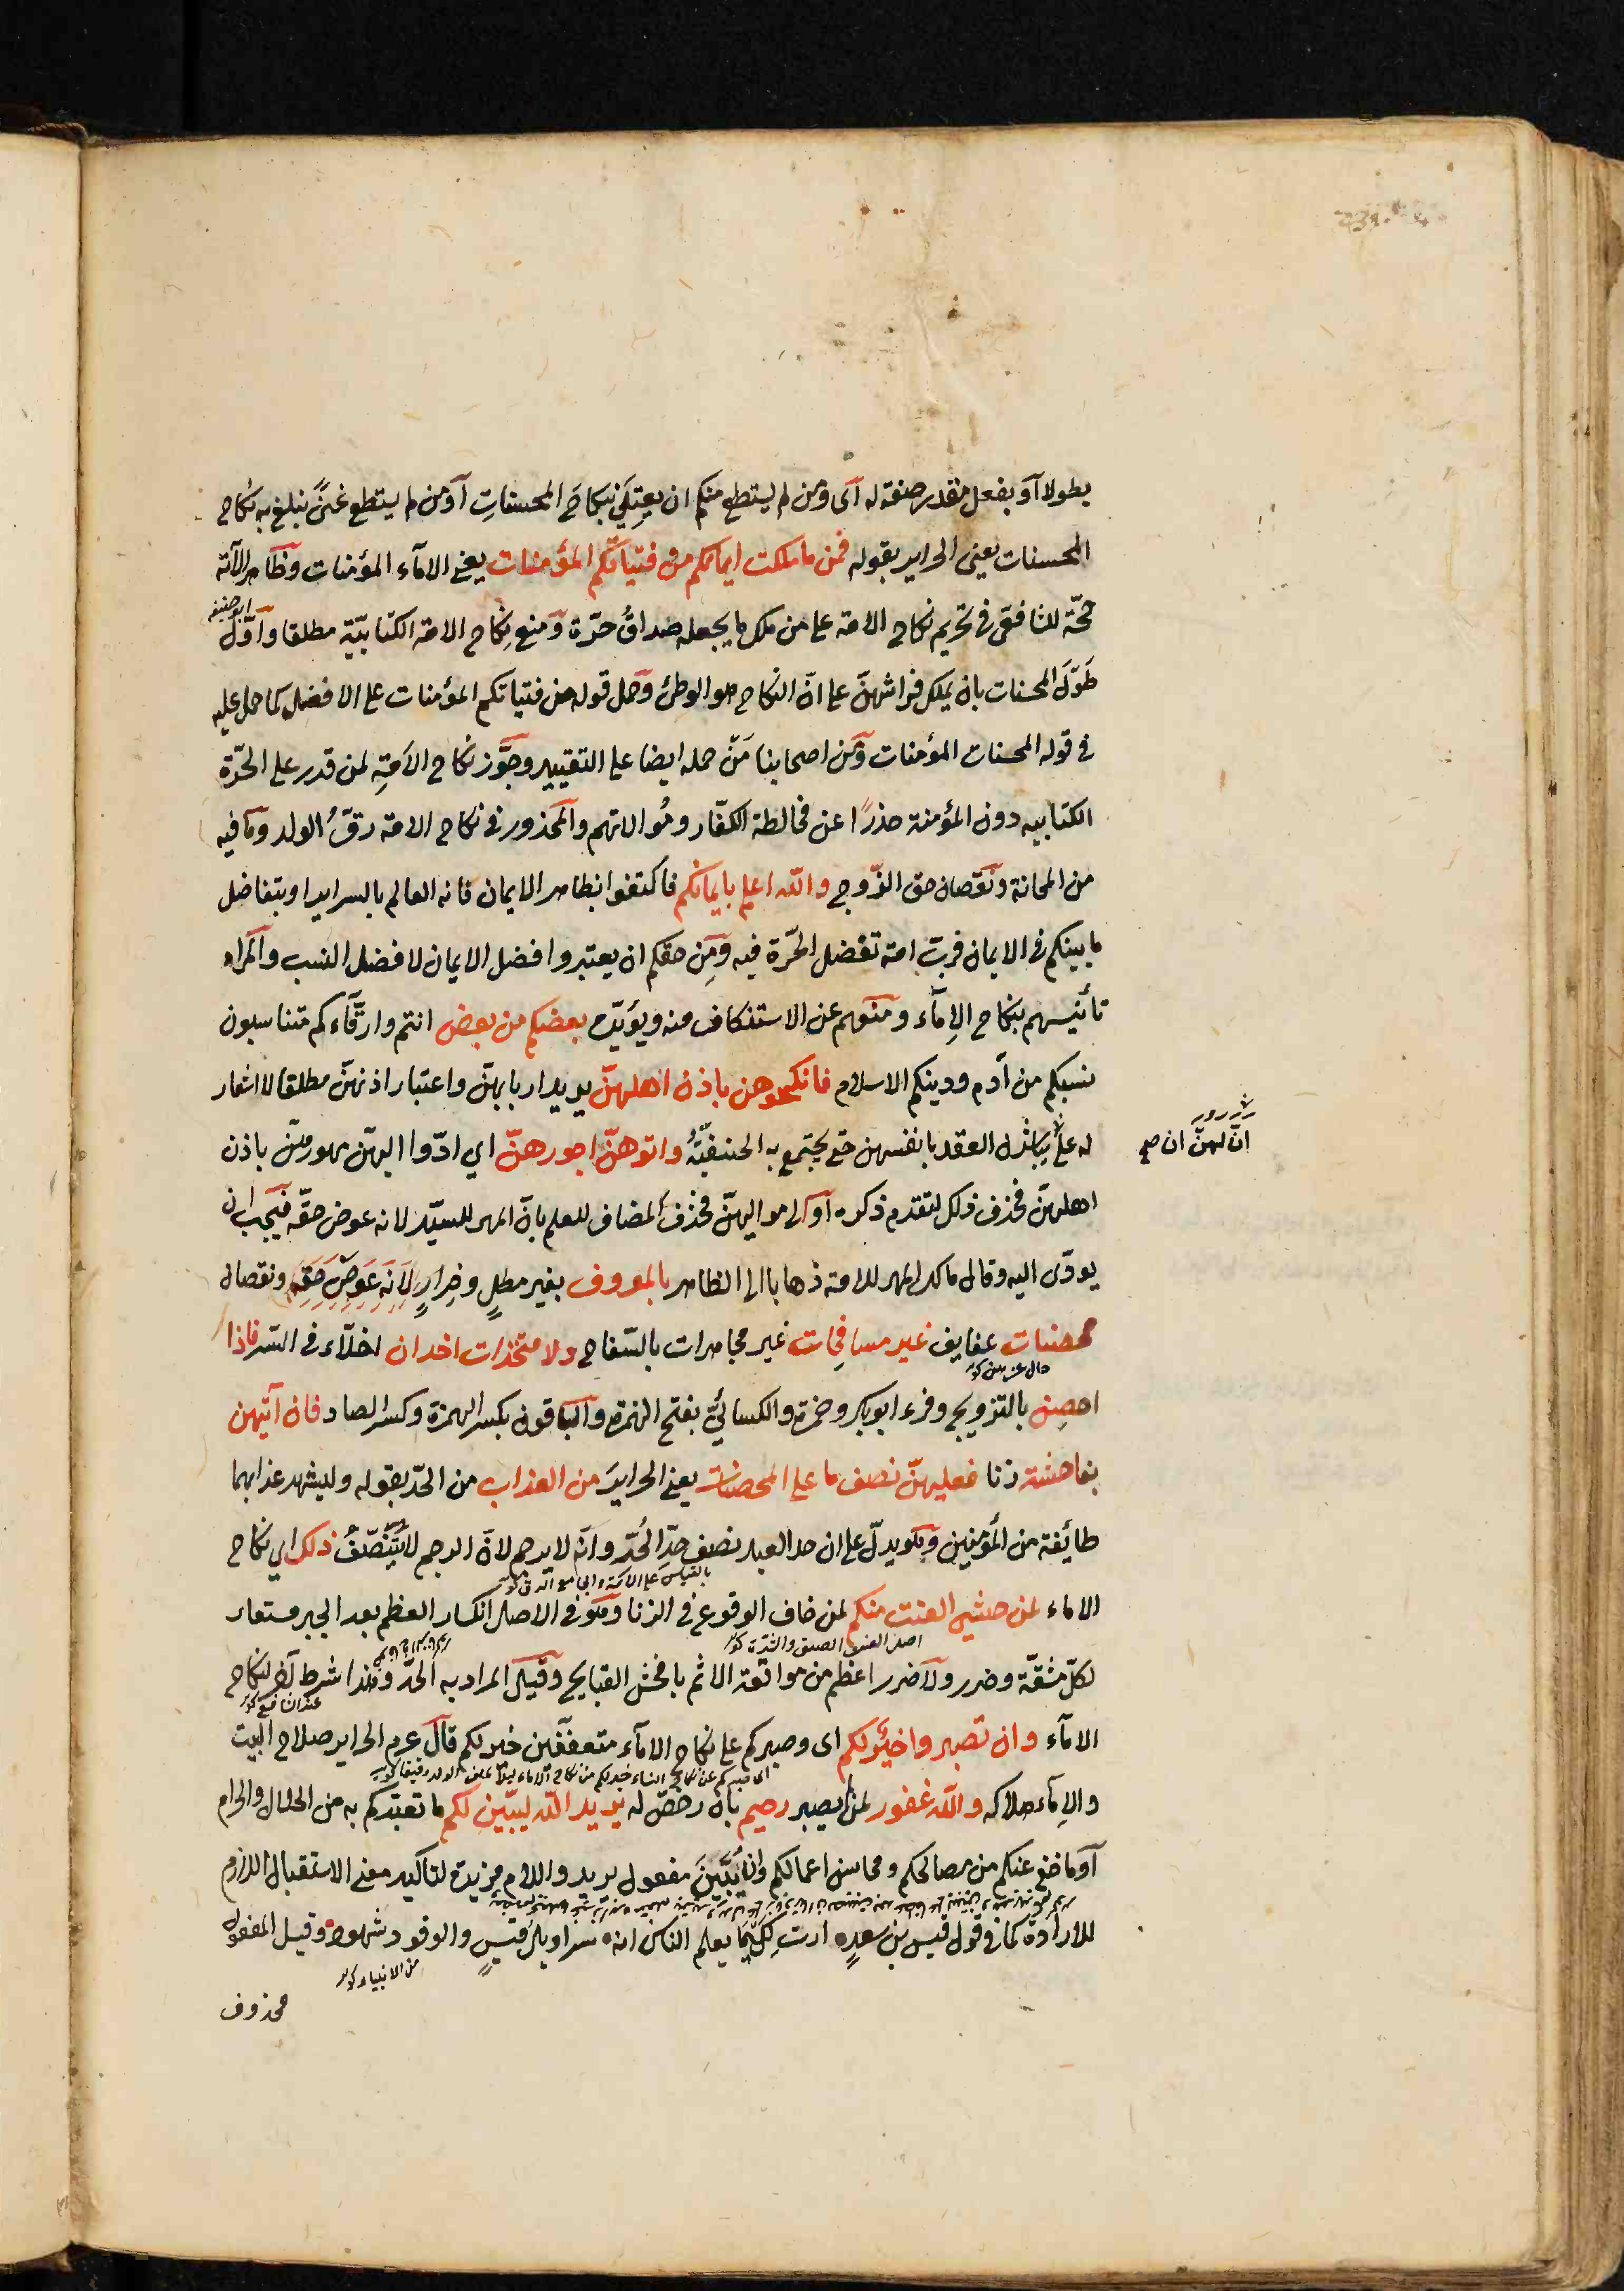 بطولا او بفعل مقدر صفة له اى ومن لم يستطع منكم ان يعتلى نكاح المحصنات او من لم يستطع غنى يبلغ به نكاح
المحصنات يعنى الحراير بقوله فمن ما ملكت ايمانكم من فتياتكم المؤمنات يعنى الامآء المؤمنات وظاهر الآية
حجّة للشافعى فى تحريم نكاح الامة على من ملك ما يجعله صداق حرّة ومنع نكاح الامة الكتابيّة مطلقا واوّل
ابو حنيفه
طَوْلَ المحصنات بان يملك فراشهنّ على انّ النكاح هو الوطئ وحمل قوله من فتياتكم المؤمنات على الافضل كما حمل عليه
فى قوله المحصنات المؤمنات ومن اصحابنا مَنْ حمله ايضا على التقييد وجوّز نكاح الامَةِ لمن قدر على الحرّة
الكتابيه دون المؤمنة حذرًا عن مخالطة الكفّار ومُوالاتهم والمحذور فى نكاح الامة رقّ الولد وما فيه
من المهانة ونقصان حق الزّوج والله اعلم بايمانكم فاكتفوا بظاهر الايمان فانه العالم بالسراير او بتفاضل
ما بينكم فى الايمان فربّ امة تفضل الحرّة فيه ومن حقكم ان يعتبروا فضل الايمان لا فضل النسب والمراد
تأنيسهم بنكاح الاِمآء ومنعهم عن الاستنكاف منه ويؤيّده بعضكم من بعض انتم وارقّآءكم متناسبون
نسبكم من آدم ودينكم الاسلام فانكحوهن باذن اهلهنّ يريد اربابهنّ واعتبار اذنهنّ مطلقا لا اشعار
له على انّ لهنّ ان
يباشرن العقد بانفسهن حتى يحتج به الحنفيّة واتوهنّ اجورهنّ اي ادّوا اليهنّ مهورهنّ باذن
اهلهنّ فحذف ذلك لتقدم ذكره او الى مواليهنّ فحذف المضاف للعلم بانّ المهر للسيّد لانه عوض حقّه فيجب ان
يودّى اليه وقال مالك المهر للامة ذهابا الى الظاهر بالمعروف بغير مطلٍ وضِرارٍ لانه عوض حقه ونقصان
محصنات عفايف غير مسافِحات غير مجاهرات بالسّفاح ولا متخذات اخدان اخلّآء فى السّر فاذا
احصِن بالتزويج وقرء ابو بكر وحمزة والكسائيّ بفتح الهمزة والباقون بكسر الهمزة وكسر الصاد فان آتيهن
بفاحشة زنا فعليهنّ نصف ما على المحصنات يعنى الحراير من العذاب من الحدّ بقوله وليشهد عذابهما
طائفة من المؤمنين وهو يدلّ على ان حد العبد نصف حدّ الحُرّ وانّه لا يرجم لانّ الرجم لا يتنصّفُ ذلك اي نكاح
الاماء لمن خشى العنت منكم لمن خاف الوقوع فى الزنا وهو فى الاصل انكسار العظم بعد الجبر مستعار
لكلّ مشقّة وضرر ولا ضرر اعظم من مواقعة الاثم بافحش القبايح وقيل المراد به الحدّ وهذا شرط آخر لنكاح
الامآء وان تصبروا خيرٌ لكم اى وصبركم على نكاح الامآء متعفّفين خير لكم قال عم الحراير صلاح البيت
والاِمآء هلاكه والله غفور لمن لم يصبر رحيم بان رخصّ له يريد الله ليبيّن لكم ما تعبّدكم به من الحلال والحرام
او ما خفى عنكم من مصالحكم ومحاسن اعمالكم وان يبيّنَ مفعول يريد واللام مزيدة لتاكيد معنى الاستقبال اللازم
للارادة كما فى قول قيس بن سعدٍ اردت لكيما يعلم الناس انه سراويل قيسٍ والوفود شهود وقيل المفعول
محذوف